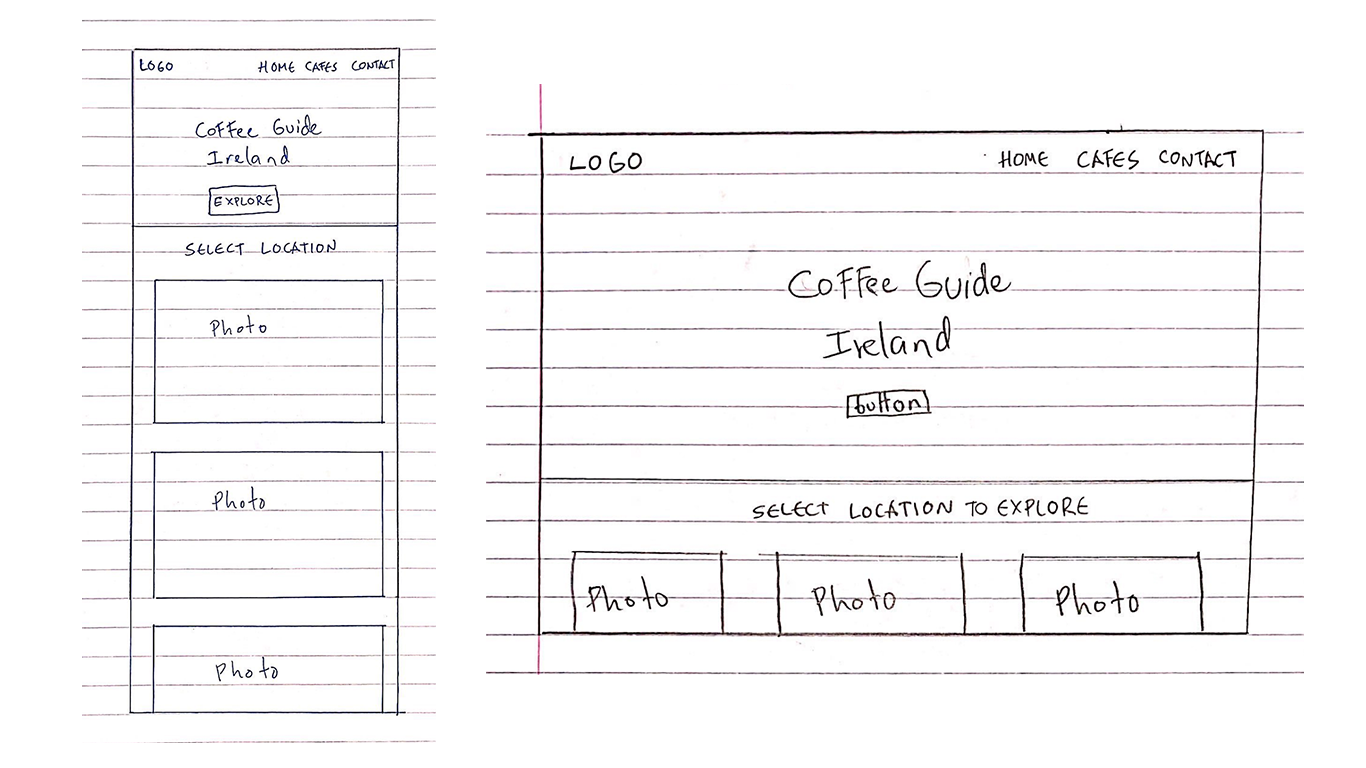 LOGO HOME CAFES CONTACT
Coffee Guide
Ireland
EXPLORE
SELECT LOCATION
Photo
Photo
Photo
LOGO HOME CAFES CONTACT
Coffee Guide
Ireland
button
SELECT LOCATION TO EXPLORE
Photo Photo Photo